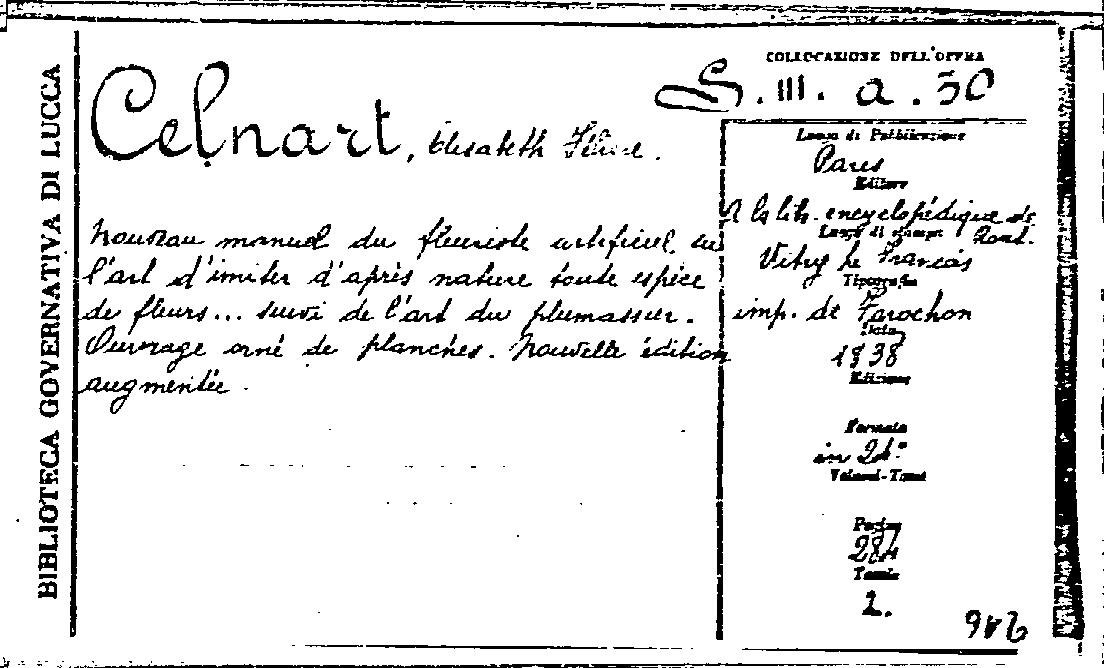 BIBLIOTECA GOVERNATIVA DI LUCCA
Celnart, Élisabeth Félicie.
Nouveau manuel du fleuriste artificiel, ou
l'art d'imiter d'après nature toute espèce
de fleurs... suivi de l'art du plumassier.
Ouvrage orné de planches. Nouvelle édition
augmentée.
COLLOCAZIONE DELL'OPERA
S. III. a. 50
Luogo di Pubblicazione
Paris
Editore
A la lib. encyclopédique de
Roret.
Luogo di stampa
Vitry le François
Tipografia
imp. de Farochon
Data
1838
Edizione
Formato
in 24°
Volumi-Tomi
Pagine
Tavole
2.